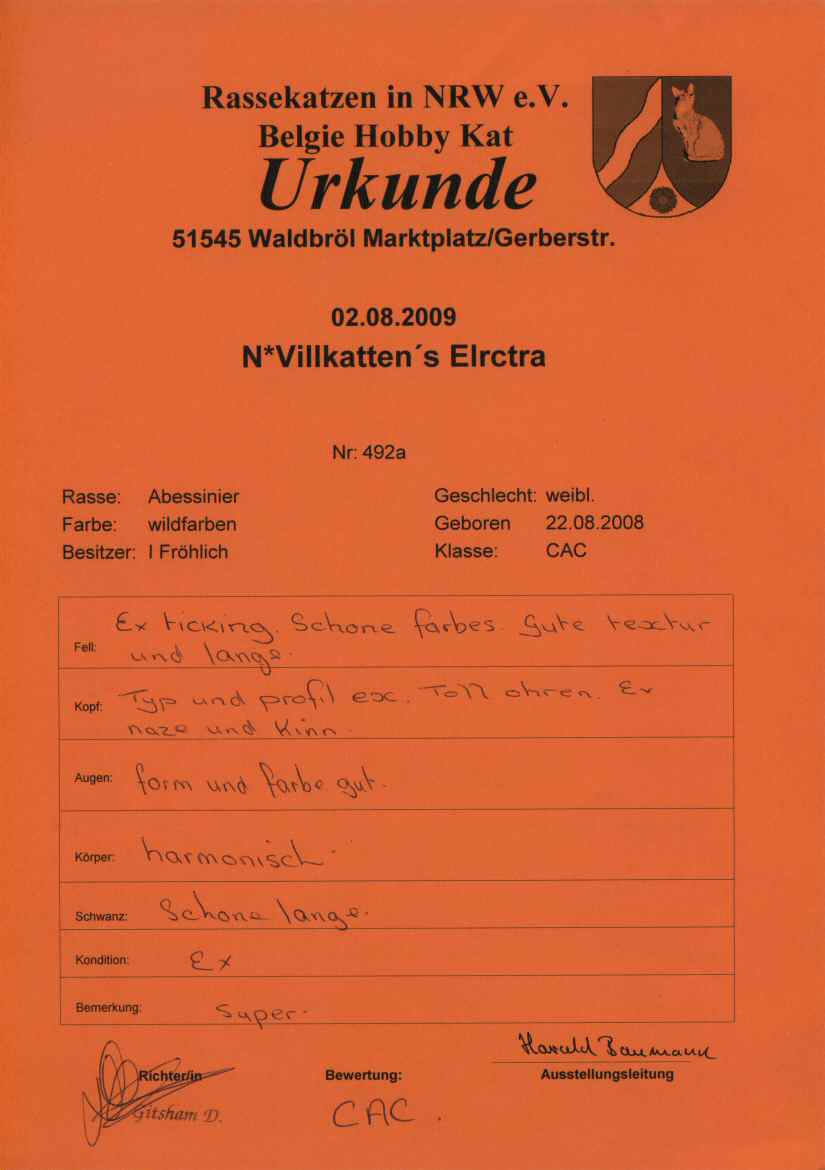 Rassekatzen in NRW e.V.
Belgie Hobby Kat
Urkunde
51545 Waldbröl Marktplatz/Gerberstr.
02.08.2009
N*Villkatten´s Elrctra
Nr: 492a
Rasse: Abessinier
Geschlecht: weibl.
Farbe: wildfarben
Geboren 22.08.2008
Besitzer: I Fröhlich
Klasse: CAC
Fell: Ex ticking. Schone farbes. Gute textur
und lange.
Kopf: Typ und profil ex. Toll ohren. Ex
naze und Kinn.
Augen: form und farbe gut.
Körper: harmonisch.
Schwanz: Schone lange.
Kondition: Ex
Bemerkung: Super.
Harald Baumann
Richter/in
Bewertung:
Ausstellungsleitung
Gitsham D.
CAC.